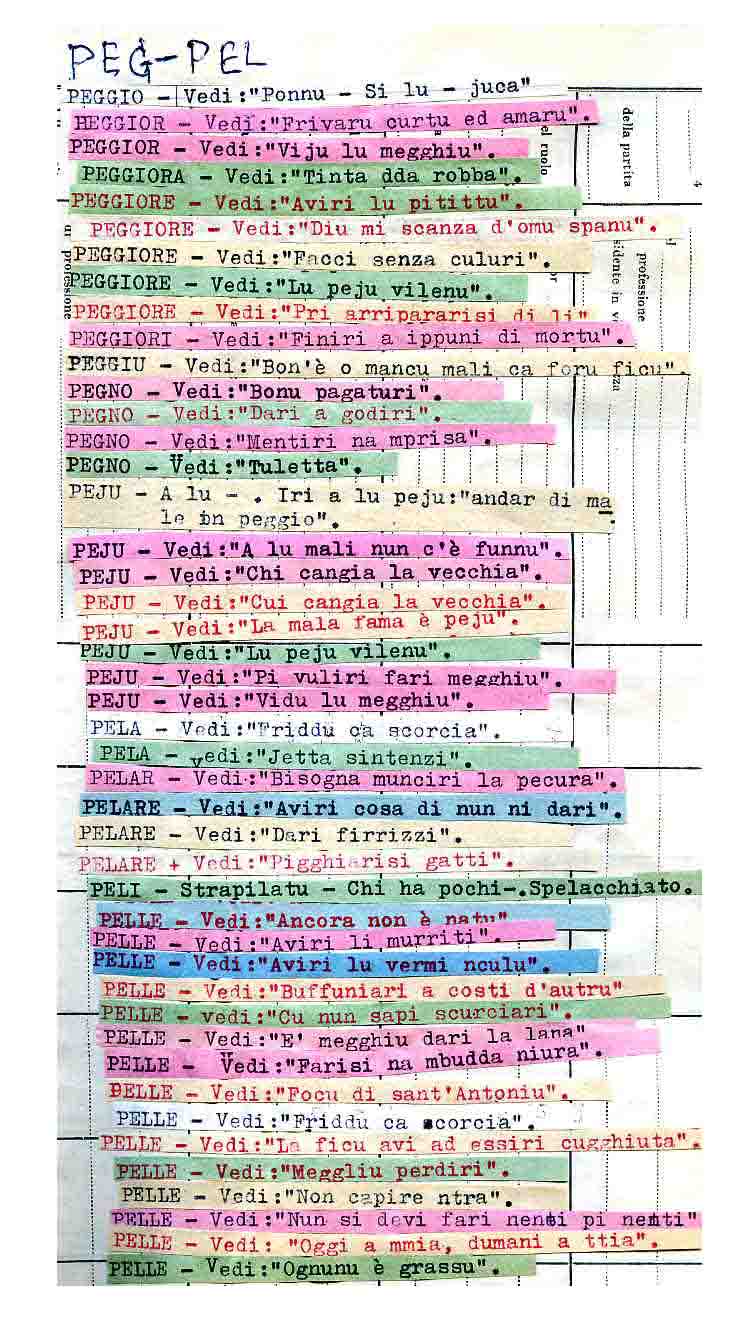 PEG-PEL
PEGGIO - Vedi:"Ponnu - Si lu - juca"
HEGGIOR - Vedi:"Frivaru curtu ed amaru".
PEGGIOR - Vedi:"Viju lu megghiu".
PEGGIORA - Vedi:"Tinta dda robba".
PEGGIORE - Vedi:"Aviri lu pitittu".
PEGGIORE - Vedi:"Diu mi scanza d'omu spanu".
PEGGIORE - Vedi:"Facci senza culuri".
PEGGIORE - Vedi:"Lu peju vilenu".
PEGGIORE - Vedi:"Pri arripararisi di li"
PEGGIORI - Vedi:"Finiri a ippuni di mortu".
PEGGIU - Vedi:"Bon'è o mancu mali ca foru ficu".
PEGNO - Vedi:"Bonu pagaturi".
PEGNO - Vedi:"Dari a godiri".
PEGNO - Vedi:"Mentiri na mprisa".
PEGNO - Vedi:"Tuletta".
PEJU - A lu - . Iri a lu peju:"andar di ma
le in peggio".
PEJU - Vedi:"A lu mali nun c'è funnu".
PEJU - Vedi:"Chi cangia la vecchia".
PEJU - Vedi:"Cui cangia la vecchia".
PEJU - Vedi:"La mala fama è peju".
PEJU - Vedi:"Lu peju vilenu".
PEJU - Vedi:"Pi vuliri fari megghiu".
PEJU - Vedi:"Vidu lu megghiu".
PELA - Vedi:"Friddu ca scorcia".
PELA - vedi:"Jetta sintenzi".
PELAR - Vedi:"Bisogna munciri la pecura".
PELARE - Vedi:"Aviri cosa di nun ni dari".
PELARE - Vedi:"Dari firrizzi".
PELARE + Vedi:"Pigghiarisi gatti".
PELI - Strapilatu - Chi ha pochi-.Spelacchiato.
PELLE - Vedi:"Ancora non è natu"
PELLE - Vedi:"Aviri li murriti".
PELLE - Vedi:"Aviri lu vermi nculu".
PELLE - Vedi:"Buffuniari a costi d'autru"
PELLE - vedi:"Cu nun sapi scurciari".
PELLE - Vedi:"E' megghiu dari la lana"
PELLE - Vedi:"Farisi na mbudda niura".
PELLE - Vedi:"Focu di sant'Antoniu".
PELLE - Vedi:"Friddu ca scorcia".
PELLE - Vedi:"La ficu avi ad essiri cugghiuta".
PELLE - Vedi:"Meggliu perdiri".
PELLE - Vedi:"Non capire ntra".
PELLE - Vedi:"Nun si devi fari nenti pi nenti"
PELLE - Vedi: "Oggi a mmia, dumani a ttia".
PELLE - Vedi:"Ognunu è grassu".
della partita
4
el ruolo
professione
sidente in
professione